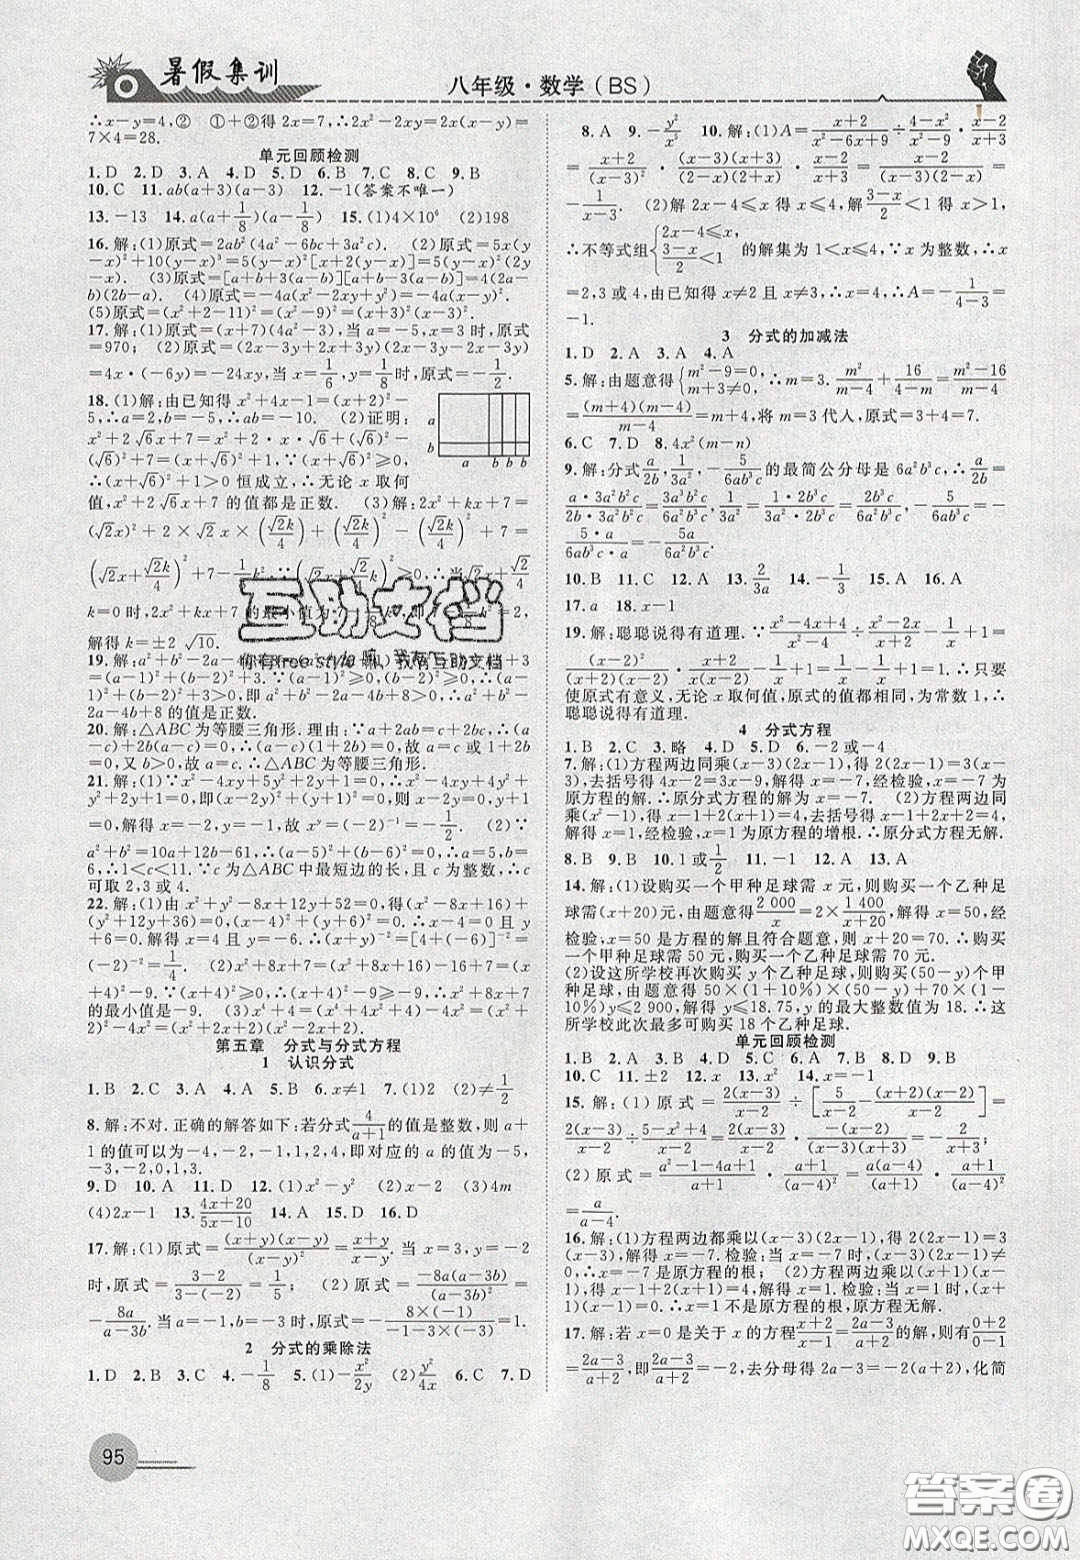 暑假集训
八年级·数学(BS)
∴x-y=4,② ①+②得2x=7,∴2x²-2xy=2x(x-y)=
7×4=28.
单元回顾检测
1.D 2.D 3.A 4.D 5.D 6.B 7.C 8.C 9.B
10.C 11.ab(a+3)(a-3) 12.-1(答案不唯一)
13.-13 14.a(a+1/8)(a-1/8) 15.(1)4×10⁶ (2)198
16.解:(1)原式=2ab²(4a²-6bc+3a²c) (2)原式=5x(y
-x)²+10(y-x)³=5(y-x)²[x+2(y-x)]=5(y-x)²(2y
-x). (3)原式=[a+b+3(a-b)][a+b-3(a-b)]=4(2a-
b)(2b-a). (4)原式=-4a(x²-2xy+y²)=-4a(x-y)².
(5)原式=(x²+2-11)²=(x²-9)²=(x+3)²(x-3)².
17.解:(1)原式=(x+7)(4a²-3),当a=-5,x=3时,原式
=970; (2)原式=(2x-3y+2x+3y)(2x-3y-2x-3y)=
4x·(-6y)=-24xy,当x=1/6,y=1/8时,原式=-1/2.
18.(1)解:由已知得x²+4x-1=(x+2)²-
5,∴a=2,b=-5,∴ab=-10. (2)证明:
x²+2√6x+7=x²+2·√6x+(√6)²-
(√6)²+7=(x+√6)²+1,∵(x+√6)²≥0,
∴(x+√6)²+1恒成立,∴无论x取何
值,x²+2√6x+7的值都是正数. (3)解:2x²+kx+7=
(√2x)²+2×√2x×(√2k/4)+(√2k/4)²-(√2k/4)²+7=
解得k=±2√10.
20.解:△ABC为等腰三角形.理由:∵a+2ab=c+2bc,∴(a
-c)+2b(a-c)=0,∴(a-c)(1+2b)=0,故a=c或1+2b=
0,又∵b>0,故a=c,∴△ABC为等腰三角形.
21.解:(1)∵x²-4xy+5y²+2y+1=0,∴x²-4xy+4y²+
y²+2y+1=0,即(x-2y)²+(y+1)²=0,则x-2y=0,y+1
=0,解得x=-2,y=-1,故xʸ=(-2)⁻¹=-1/2. (2)∵
a²+b²=10a+12b-61,∴(a-5)²+(b-6)²=0,∴a=5,b=
6,∴1<c<11.又∵△ABC中最短边的长是c,且c为整数,∴c
可取2,3或4.
22.解:(1)由x²+y²-8x+12y+52=0,得(x²-8x+16)+
(y²+12y+36)=0,(x-4)²+(y+6)²=0,∴x-4=0且
y+6=0.解得x=4且y=-6.∴(x+y)⁻²=[4+(-6)]⁻²=
(-2)⁻²=1/4. (2)x²+8x+7=(x²+8x+16)-16+7=(x
+4)²-9.∵(x+4)²≥0,∴(x+4)²-9≥-9,∴x²+8x+7
第五章 分式与分式方程
1 认识分式
1.B 2.C 3.A 4.A 5.B 6.x≠1 7.(1)2 (2)≠1/2
8.解:不对.正确的解答如下:若分式4/(a+1)的值是整数,则a+
1的值可以为-4,-2,-1,1,2,4,即对应的a的值为-5,
-3,-2,0,1,3.
9.D 10.A 11.D 12.(1)x²-y² (2)x (3)4m
(4)2x-1 13.(4x+20)/(5x-10) 14.A 15.D 16.D
17.解:(1)原式=(x+y)(x-y)/(x-y)²=(x+y)/(x-y).当x=3,y=-2
时,原式=(3-2)/(3-(-2))=1/5; (2)原式=-8a(a-3b)/(a-3b)²=
-8a/(a-3b).当a=-1,b=-3时,原式=-8×(-1)/(-1-3×(-3))=1.
2 分式的乘除法
1.D 2.B 3.C 4.-1/8 5.(1)-x²/2y (2)y²/4x 6.C 7.D
8.A 9.-y²/x⁵ 10.解:(1)A=(x+2)/(x²-6x+9)÷(4-x²)/(x²-9)·(x-2)/(x+3)
=(x+2)/(x-3)²·(x-3)(x+3)/(2-x)(2+x)·(x-2)/(x+3)=(x-2)/(x-3)(2-x)=
-1/(x-3). (2)解2x-4≤x得x≤4,解(3-x)/2<1得x>1,
∴不等式组{2x-4≤x, (3-x)/2<1 的解集为1<x≤4,∵x为整数,∴x=
2,3或4,由已知得x≠2且x≠3,∴x=4,A=-1/(4-3)=
-1.
3 分式的加减法
1.D 2.A 3.A 4.A
5.解:由题意得{m²-9=0, m+3≠0, ∴m=3. m²/(m-4)+16/(4-m)=(m²-16)/(m-4)
=(m+4)(m-4)/(m-4)=m+4,将m=3代入,原式=3+4=7.
6.C 7.D 8.4x²(m-n)
9.解:分式a/2b,1/3a²,-5/6ab³c的最简公分母是6a²b³c,∴a/2b=
a·3a²b²c/2b·3a²b²c=3a³b²c/6a²b³c,1/3a²=1·2b³c/3a²·2b³c=2b³c/6a²b³c,-5/6ab³c=
-5·a/6ab³c·a=-5a/6a²b³c.
10.B 11.C 12.A 13.2/3a 14.-1/3 15.A 16.A
17.a 18.x-1
19.解:聪聪说得有道理.∵(x²-4x+4)/(x²-4)÷(x-2)/(x+2)-1/x·x+1=
使原式有意义,无论x取何值,原式的值都相同,为常数1,∴
聪聪说得有道理.
4 分式方程
1.B 2.C 3.略 4.D 5.D 6.-2或-4
7.解:(1)方程两边同乘(x-3)(2x-1),得2(2x-1)=3(x-
3),去括号得4x-2=3x-9,解得x=-7,经检验,x=-7为
原方程的解.∴原分式方程的解为x=-7. (2)方程两边同
乘(x²-1),得x-1+2(x+1)=4,去括号得x-1+2x+2=4,
解得x=1,经检验,x=1为原方程的增根.∴原分式方程无解.
8.B 9.B 10.1或1/2 11.-1 12.A 13.A
14.解:(1)设购买一个甲种足球需x元,则购买一个乙种足
球需(x+20)元,由题意得2 000/x=2×1 400/(x+20),解得x=50,经
检验,x=50是方程的解且符合题意,则x+20=70.∴购买
一个甲种足球需50元,购买一个乙种足球需70元.
(2)设这所学校再次购买y个乙种足球,则购买(50-y)个
甲种足球,由题意得50×(1+10%)×(50-y)+70×(1-
10%)y≤2 900,解得y≤18.75,y的最大整数值为18.∴这
所学校此次最多可购买18个乙种足球.
单元回顾检测
1.A 2.A 3.D 4.C 5.A 6.B 7.D 8.D 9.B
10.C 11.±2 12.x 13.x² 14.x=-1
15.解:(1)原式=2(x-3)/(x-2)÷[5/(x-2)-(x+2)(x-2)/(x-2)]=
2(x-3)/(x-2)÷(5-x²+4)/(x-2)=2(x-3)/(x-2)·(x-2)/(3-x)(3+x)=-2/(x+3);
(2)原式=(a²-1-4a+1)/(a+1)÷a(a-4)²/(a+1)... 
16.解:(1)方程两边都乘以(x-3)(2x-1),得2(2x-1)=3
(x-3),解得x=-7.检验:当x=-7时,(x-3)(2x-1)≠
0,∴x=-7是原方程的根; (2)方程两边乘以(x+1)(x-
1),得x-1+2(x+1)=4,解得x=1.检验:当x=1时,(x+
1)(x-1)=0,∴x=1不是原方程的根,原方程无解.
17.解:若x=0是关于x的方程(x+2)/(x-1)+1=(2a-3)/(a+2)的解,则有(0+2)/(0-1)
=(2a-3)/(a+2),即(2a-3)/(a+2)=-2,去分母得2a-3=-2(a+2),化简
95
互助文档
你有free style嘛,我有互助文档
答案圈
MXQE.COM